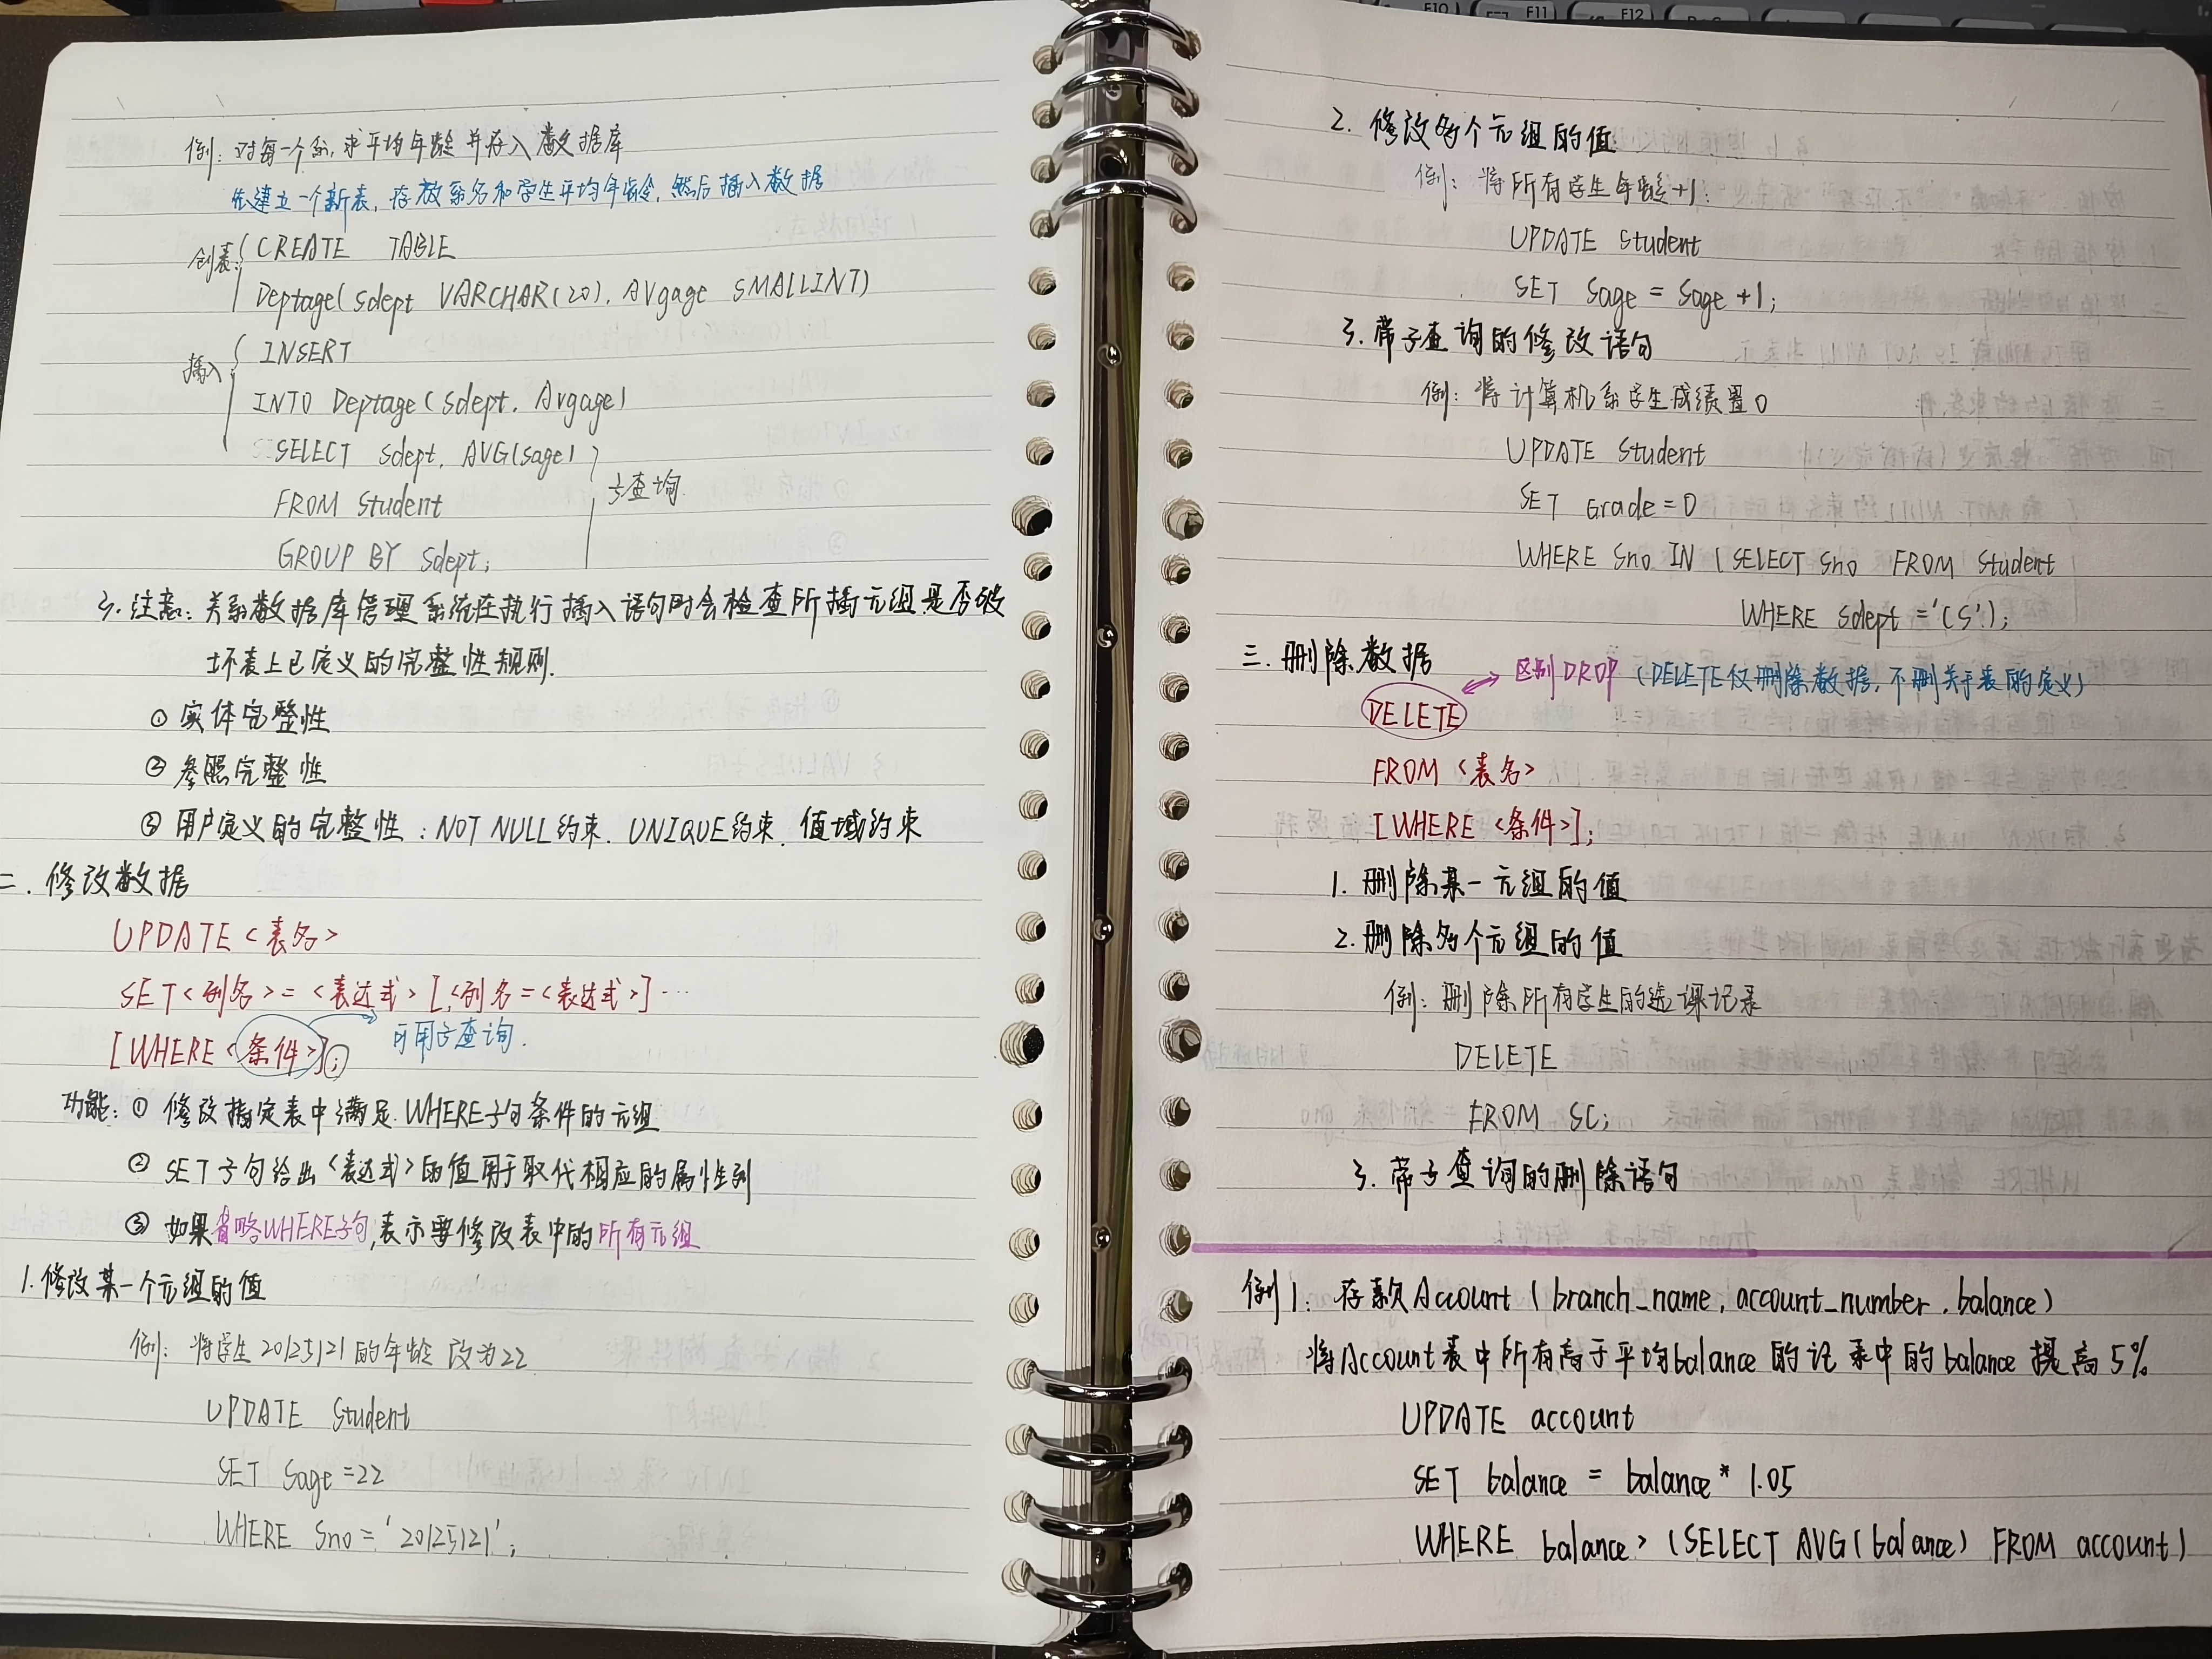 例：对每一个系，求平均年龄并存入数据库
先建立一个新表，存放系名和学生平均年龄，然后插入数据
创表： CREATE TABLE
Deptage(Sdept VARCHAR(20), Avgage SMALLINT)
插入 INSERT
INTO Deptage(Sdept, Avgage)
SELECT Sdept, AVG(Sage)
子查询
FROM Student
GROUP BY Sdept;
3. 注意：关系数据库管理系统在执行插入语句时会检查所插元组是否破
坏表上已定义的完整性规则.
① 实体完整性
② 参照完整性
③ 用户定义的完整性：NOT NULL约束. UNIQUE约束. 值域约束
二. 修改数据
UPDATE <表名>
SET <列名>=<表达式> [,<列名=<表达式>]…
[WHERE <条件>];
可用子查询.
功能：① 修改指定表中满足WHERE子句条件的元组
② SET子句给出<表达式>的值用于取代相应的属性列
③ 如果省略WHERE子句,表示要修改表中的所有元组
1. 修改某一个元组的值
例：将学生20125121的年龄改为22
UPDATE Student
SET Sage=22
WHERE Sno='20125121';
2. 修改多个元组的值
例：将所有学生年龄+1.
UPDATE Student
SET Sage = Sage+1;
3. 带子查询的修改语句
例：将计算机系学生成绩置0
UPDATE Student
SET Grade=0
WHERE Sno IN (SELECT Sno FROM Student
WHERE Sdept='CS');
三. 删除数据
区别DROP (DELETE仅删除数据, 不删关于表的定义)
DELETE
FROM <表名>
[WHERE <条件>];
1. 删除某一元组的值
2. 删除多个元组的值
例：删除所有学生的选课记录
DELETE
FROM SC;
3. 带子查询的删除语句
例1：存款Account (branch_name, account_number, balance)
将Account表中所有高于平均balance的记录中的balance提高5%
UPDATE account
SET balance = balance * 1.05
WHERE balance > (SELECT AVG(balance) FROM account)
F10
F11
F12